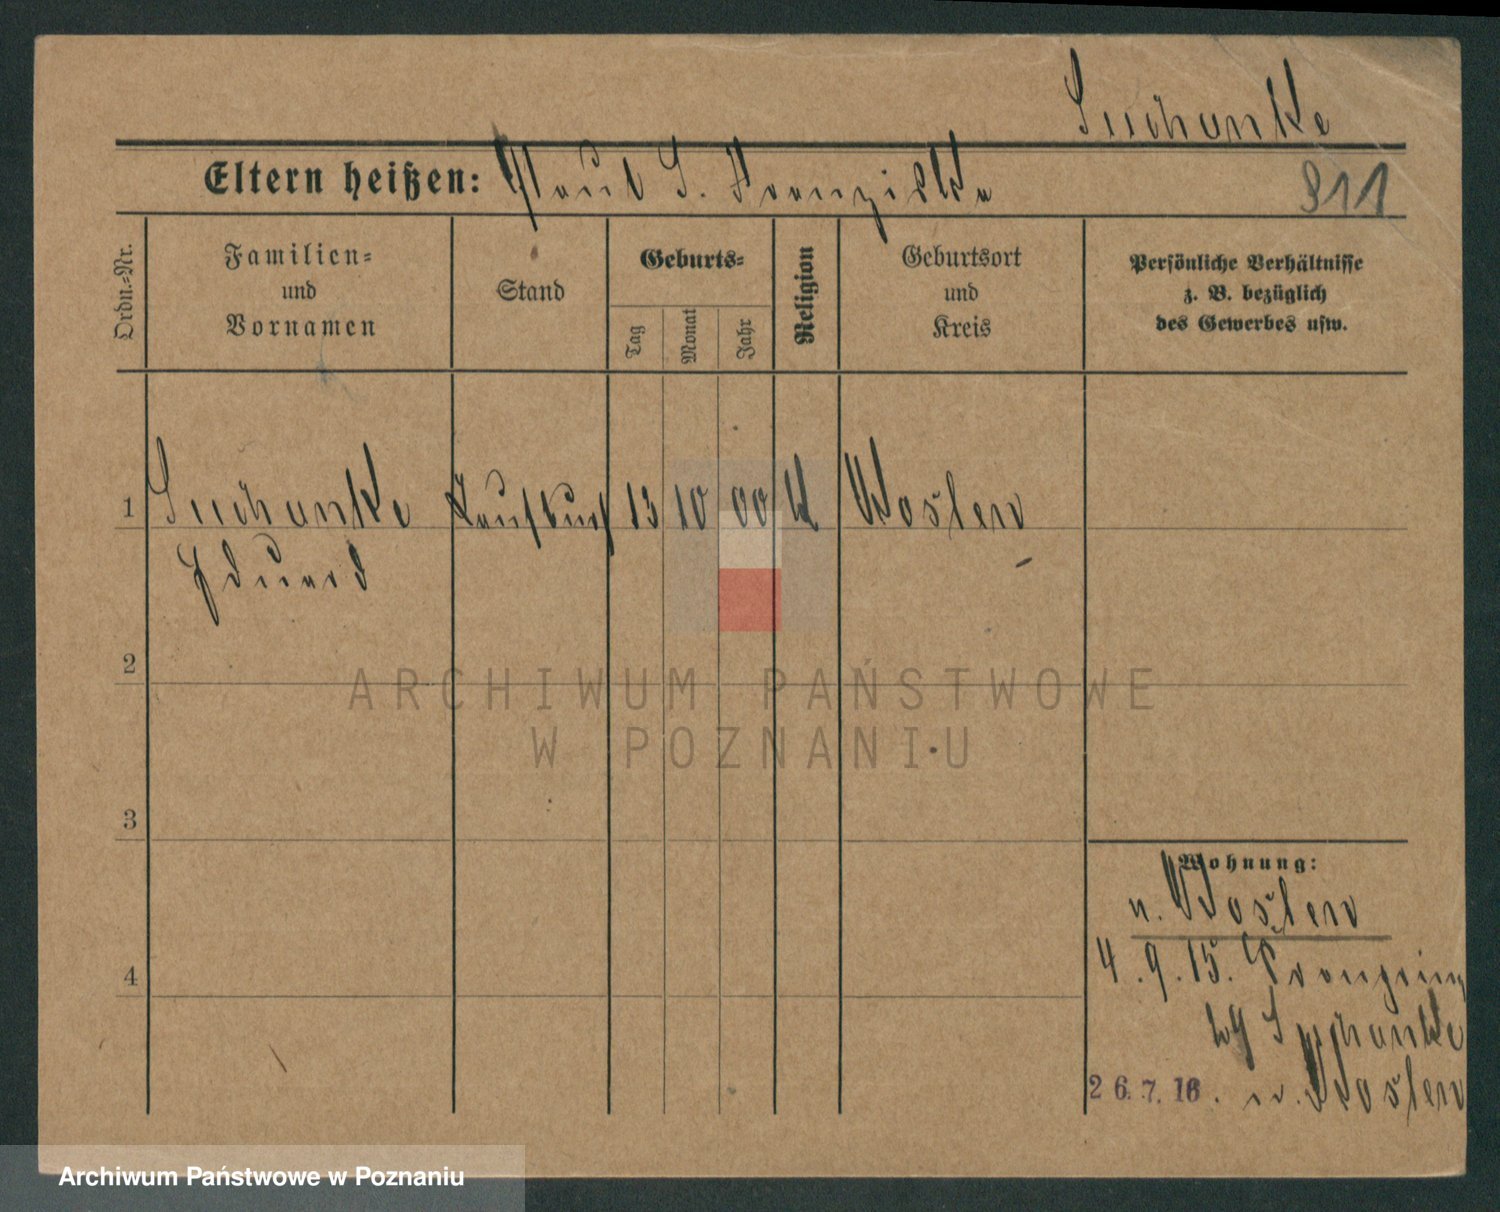 Suchanke
Eltern heißen: Paul S. Franziska
911
Ordn.-Nr.
Familien- und Vornamen
Stand
Geburts-
Tag
Monat
Jahr
Religion
Geburtsort und Kreis
Persönliche Verhältnisse
z. B. bezüglich
des Gewerbes usw.
1 Suchanke Laufbursch 13 10 00 K
Eduard
2
ARCHIWUM PAŃSTWOWE
W POZNANIU
3
Wohnung:
4
4.9.15.
b/ Suchanke
26.7.16.
Archiwum Państwowe w Poznaniu